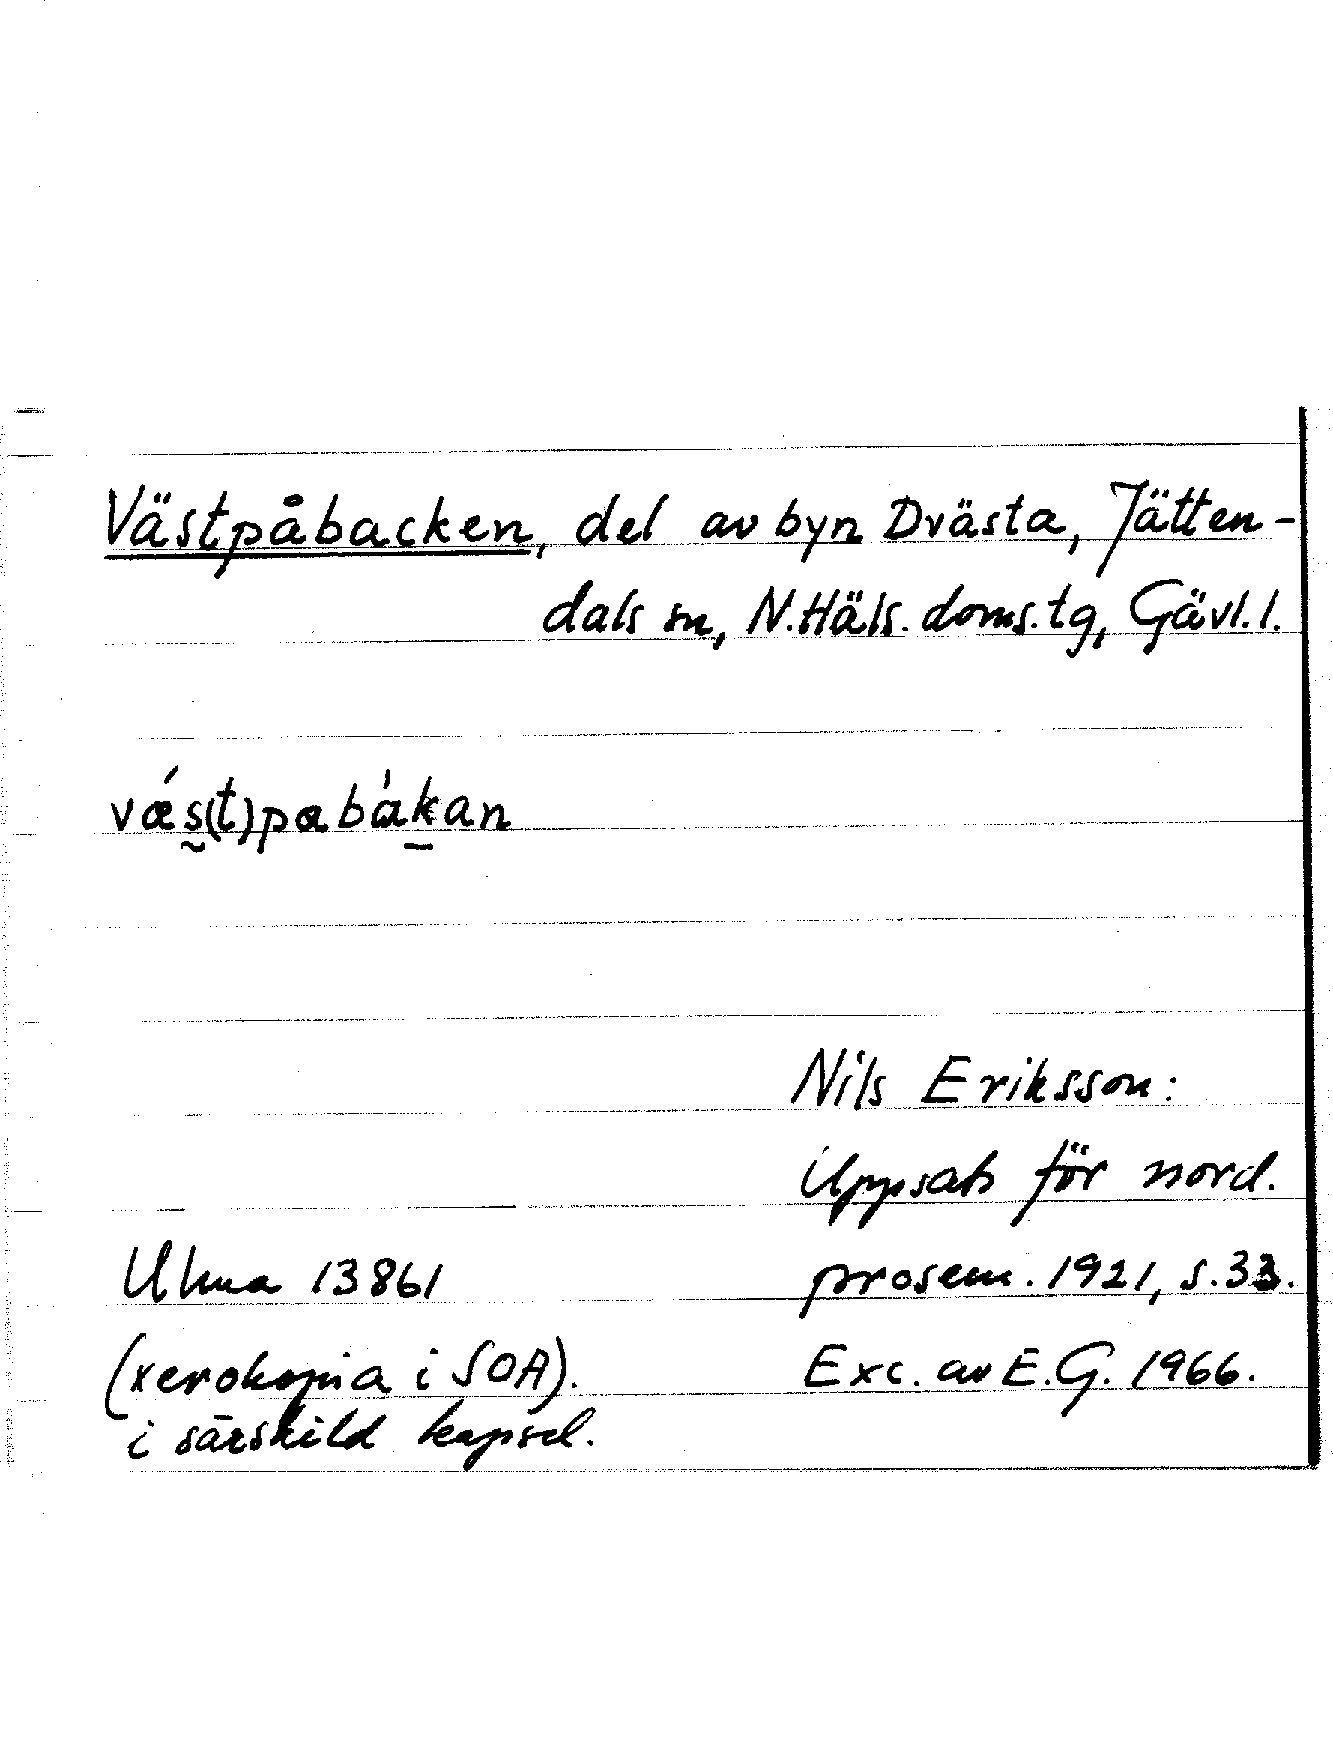 Västpåbacken, del av byn Dvästa, Jätten-
dals sn, N.Häls. doms.tg, Gävl.l.
vǽs̰(t)paba̍ḵan
Nils Eriksson:
Uppsats för nord.
Ulma 13861 prosem. 1921, s.33.
(xerokopia i SOA). Exc. av E.G. 1966.
i särskild kapsel.